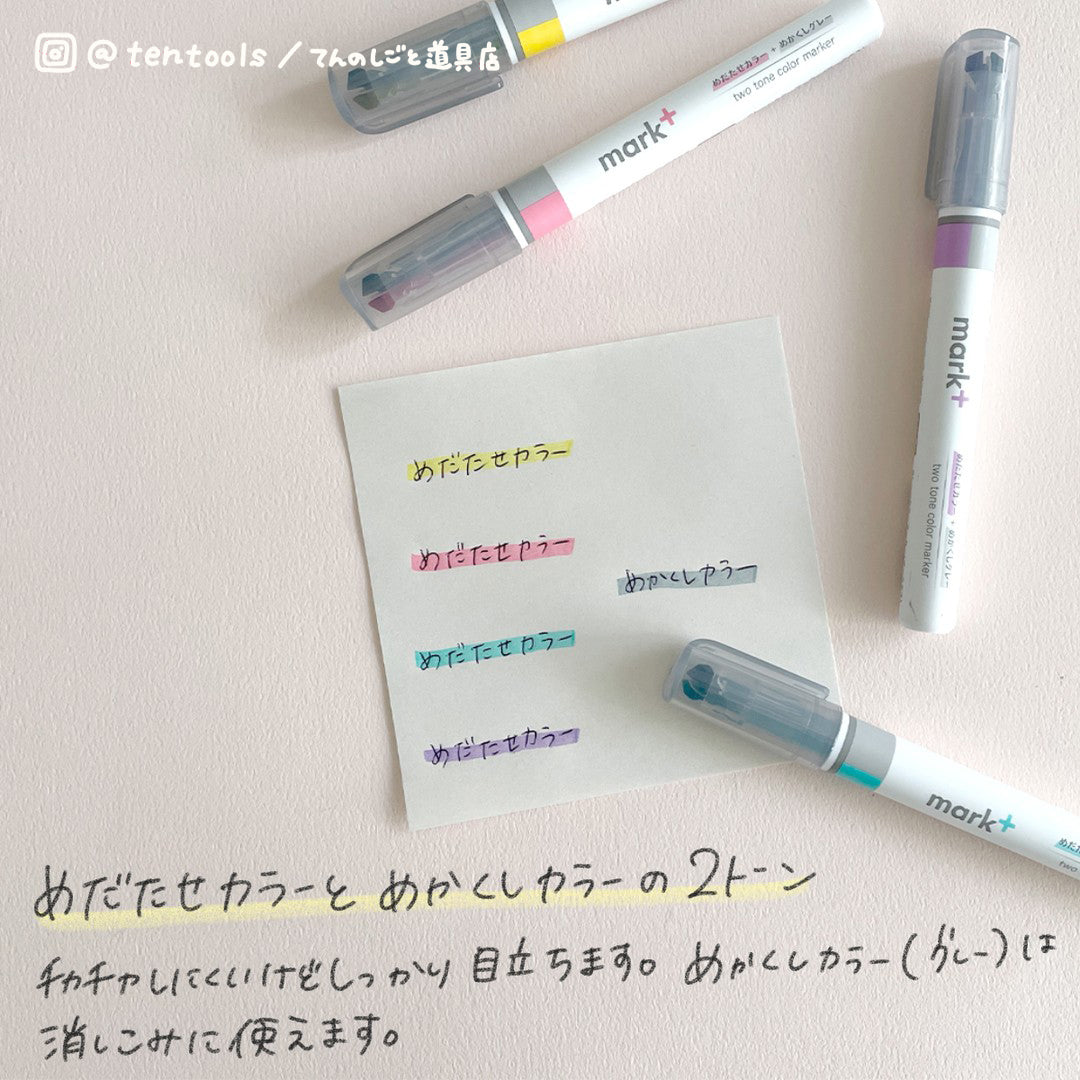 @tentools / てんのしごと道具店
めだたせカラー + めかくしグレー
two tone color marker
mark+
mark+
めだたせカラー + めかくしグレー
two tone color marker
めだたせカラー
めだたせカラー
めかくしカラー
めだたせカラー
めだたせカラー
mark+
めだた
two
めだたせカラーと めかくしカラーの 2トーン
チカチカしにくいけどしっかり 目立ちます。 めかくしカラー(グレー)は
消しこみに使えます。